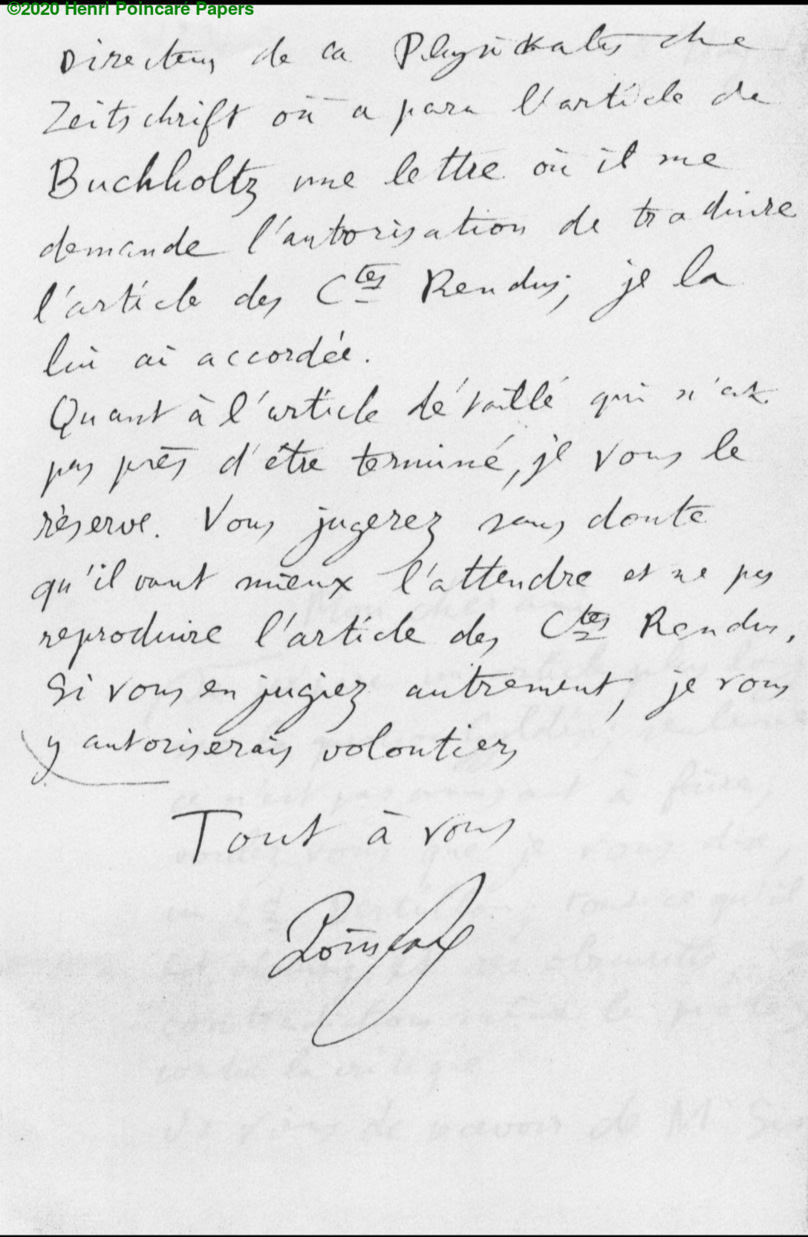 ©2020 Henri Poincaré Papers
Directeur de la Physikalische
Zeitschrift où a paru l'article de
Buchholtz une lettre où il me
demande l'autorisation de traduire
l'article des Ctes Rendus; je la
lui ai accordée.
Quant à l'article détaillé qui n'est
pas près d'être terminé, je vous le
réserve. Vous jugerez sans doute
qu'il vaut mieux l'attendre et ne pas
reproduire l'article des Ctes Rendus.
Si vous en jugiez autrement, je vous
y autoriserais volontiers
Tout à vous
Poincaré